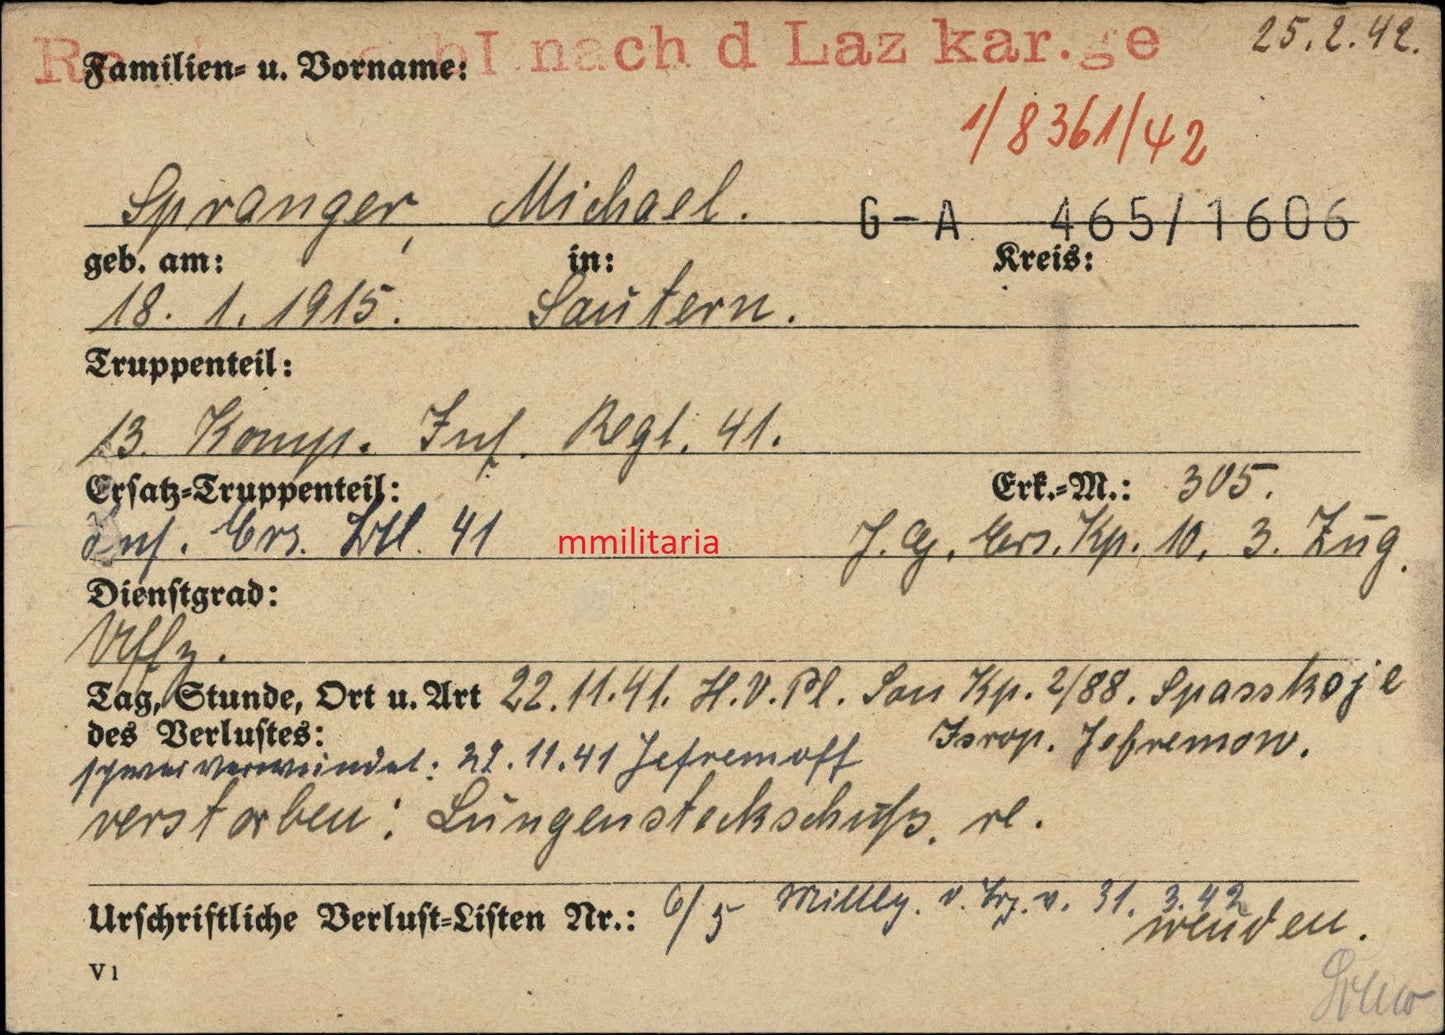 nach d Laz kar. ge
25.2.42.
Familien- u. Vorname:
1/8361/42
Spranger, Michael.
G-A 465/1606
geb. am: in: Kreis:
18. 1. 1915. Lautern.
Truppenteil:
13. Komp. Inf. Regt. 41.
Ersatz-Truppenteil: Erk.-M.: 305.
Inf. Ers. Btl. 41 J. G. Ers. Kp. 10, 3. Zug.
mmilitaria
Dienstgrad:
Uffz.
Tag, Stunde, Ort u. Art 22.11.41. H.V.Pl. San Kp. 2/88. Spasskoje
des Verlustes: Jsrop. Jefremow.
schwer verwundet: 22.11.41 Jefremoff
verstorben: Lungensteckschuß, re.
Urschriftliche Verlust-Listen Nr.: 6/5 v. 31. 3. 42
wenden.
V 1